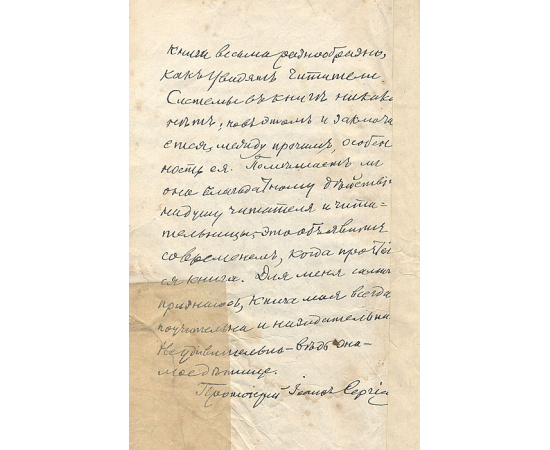 книги весьма разнообразны,
какъ увидятъ читатели.
Системы въ книгѣ никако
нѣтъ; но въ этомъ и заключа
ется, между прочимъ, особен
ность ея. Помѣшаетъ ли
она благодатному дѣйствi
на душу читателя и чита-
тельницы, это объявитъ
со временемъ, когда прочте
ся книга. Для меня самаго
признаюсь, книга моя всегда
поучительна и назидательна
Неудивительно – вѣдь она –
мое дѣтище.
Протоiерей Iоаннъ Сергiе